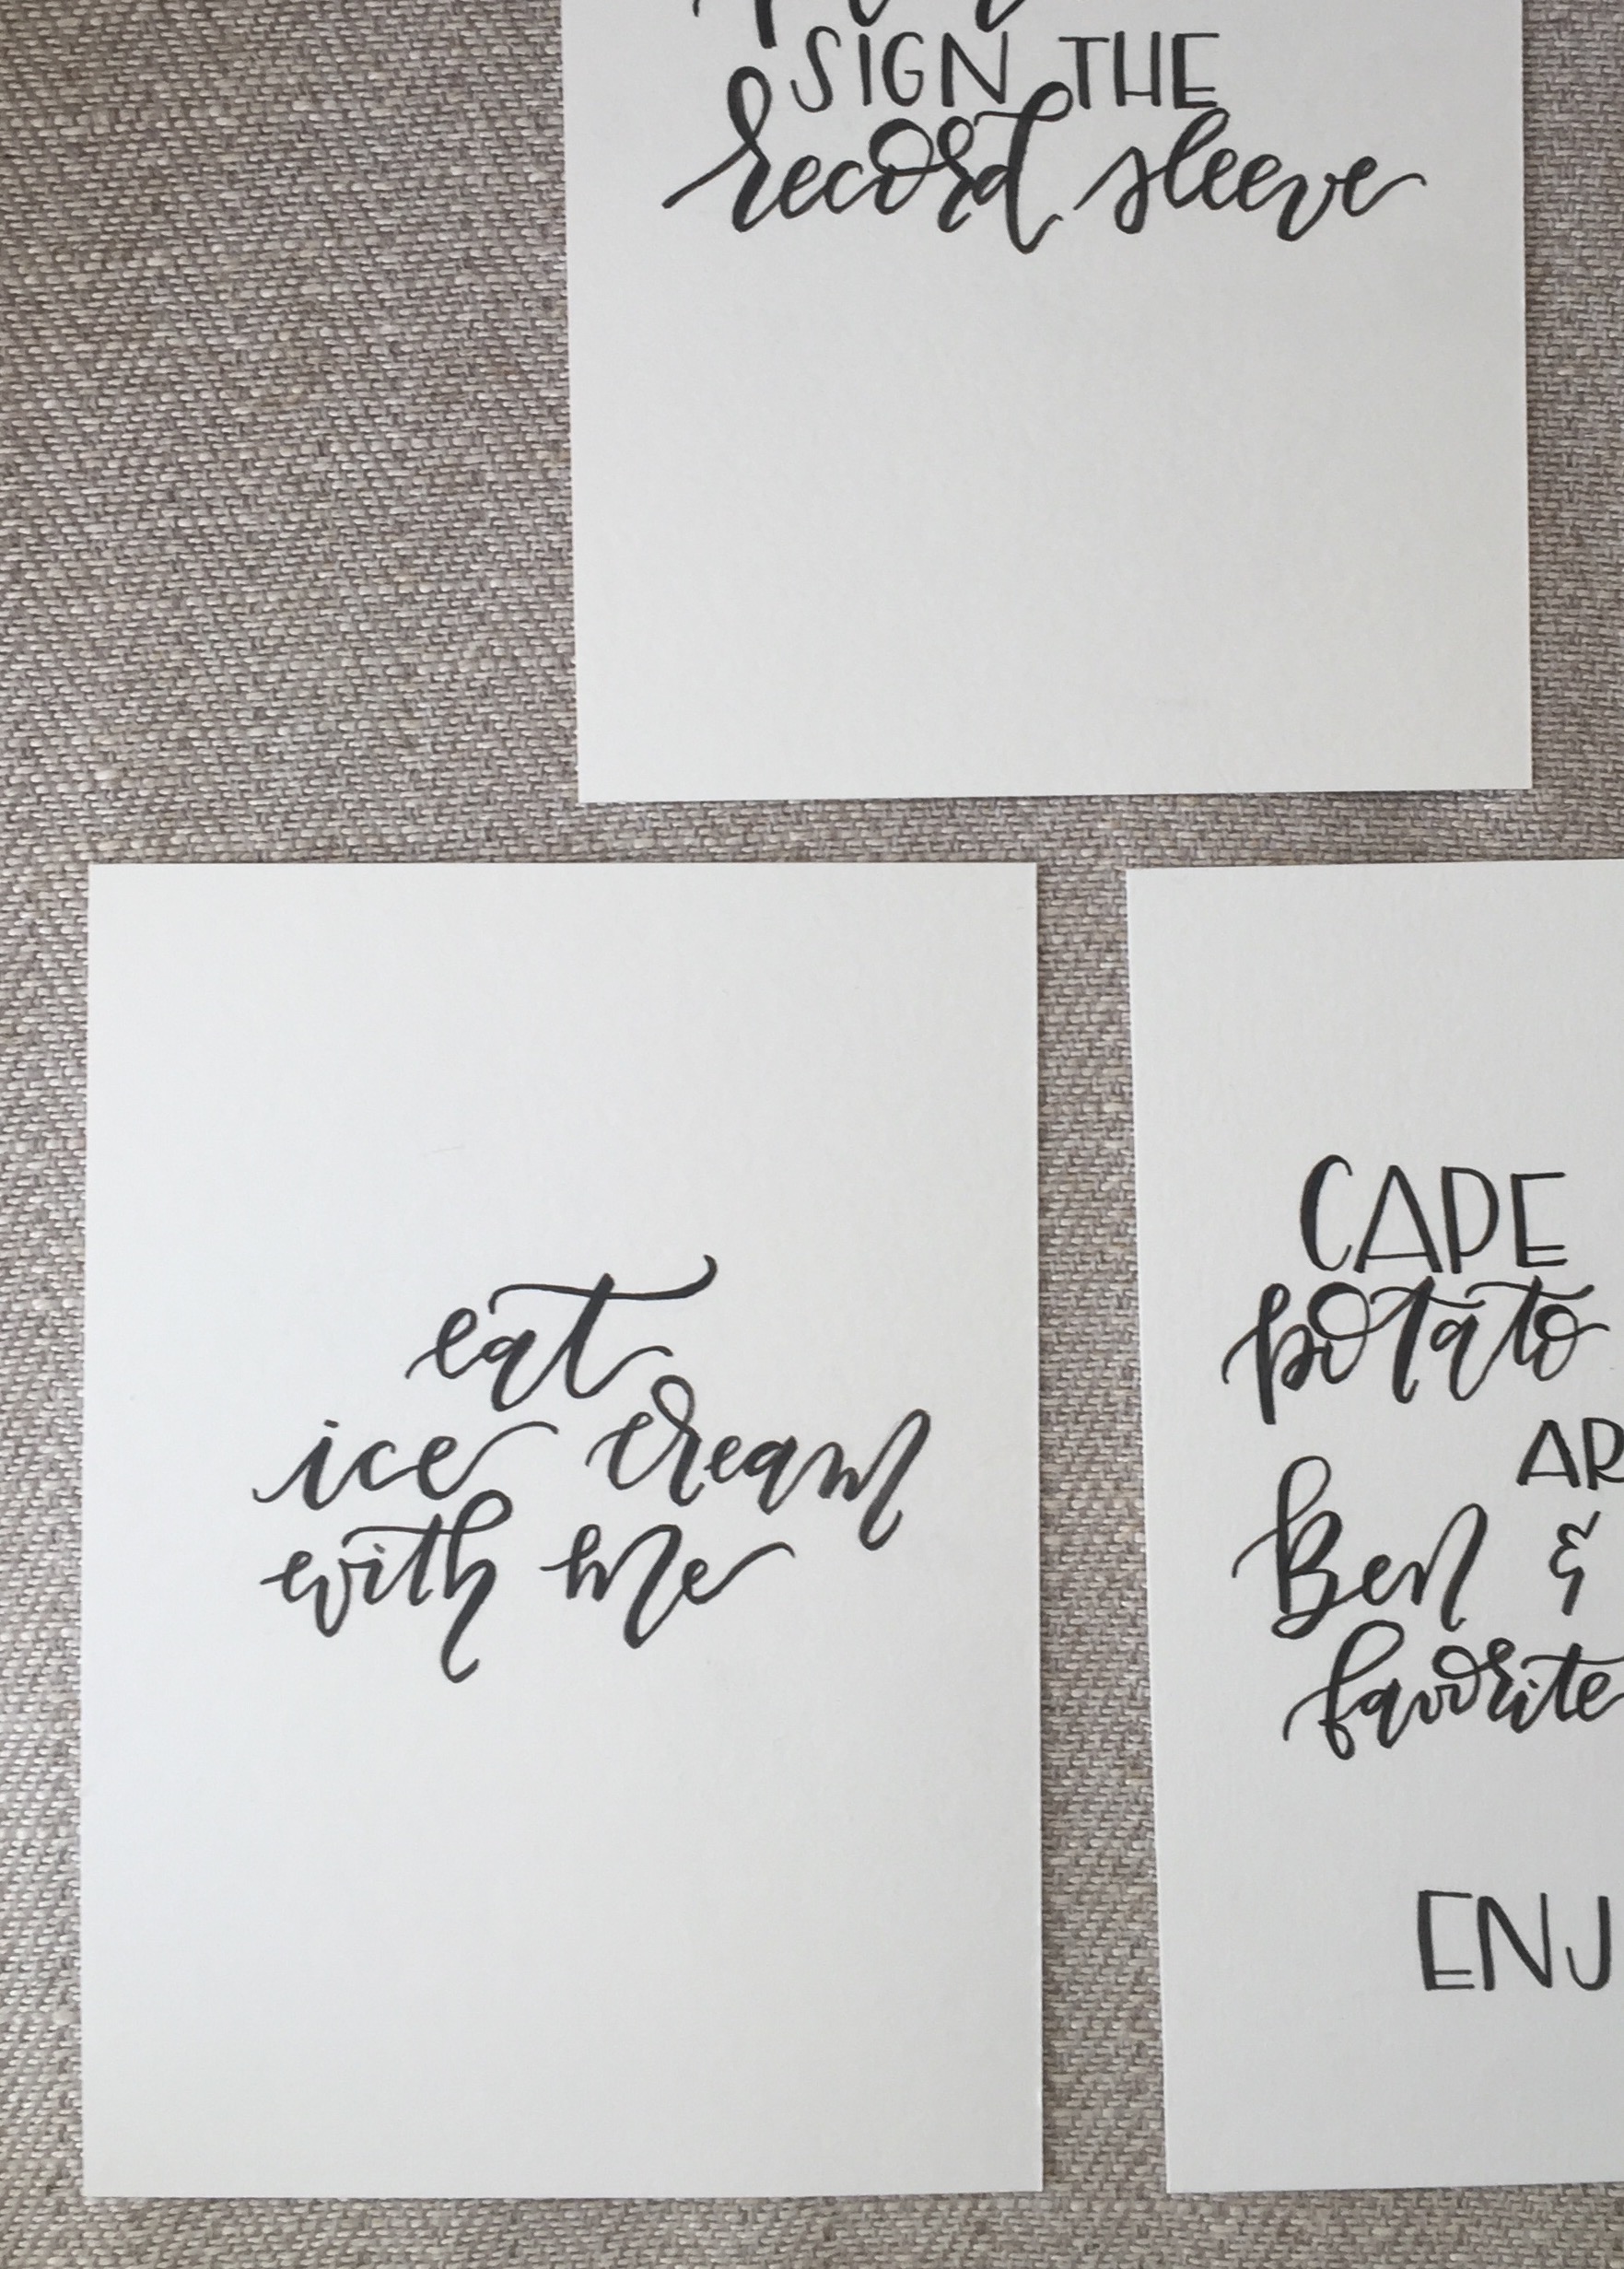 SIGN THE
record sleeve
eat
ice cream
with me
CAPE
potato
AR
Ben &
favorite
ENJ